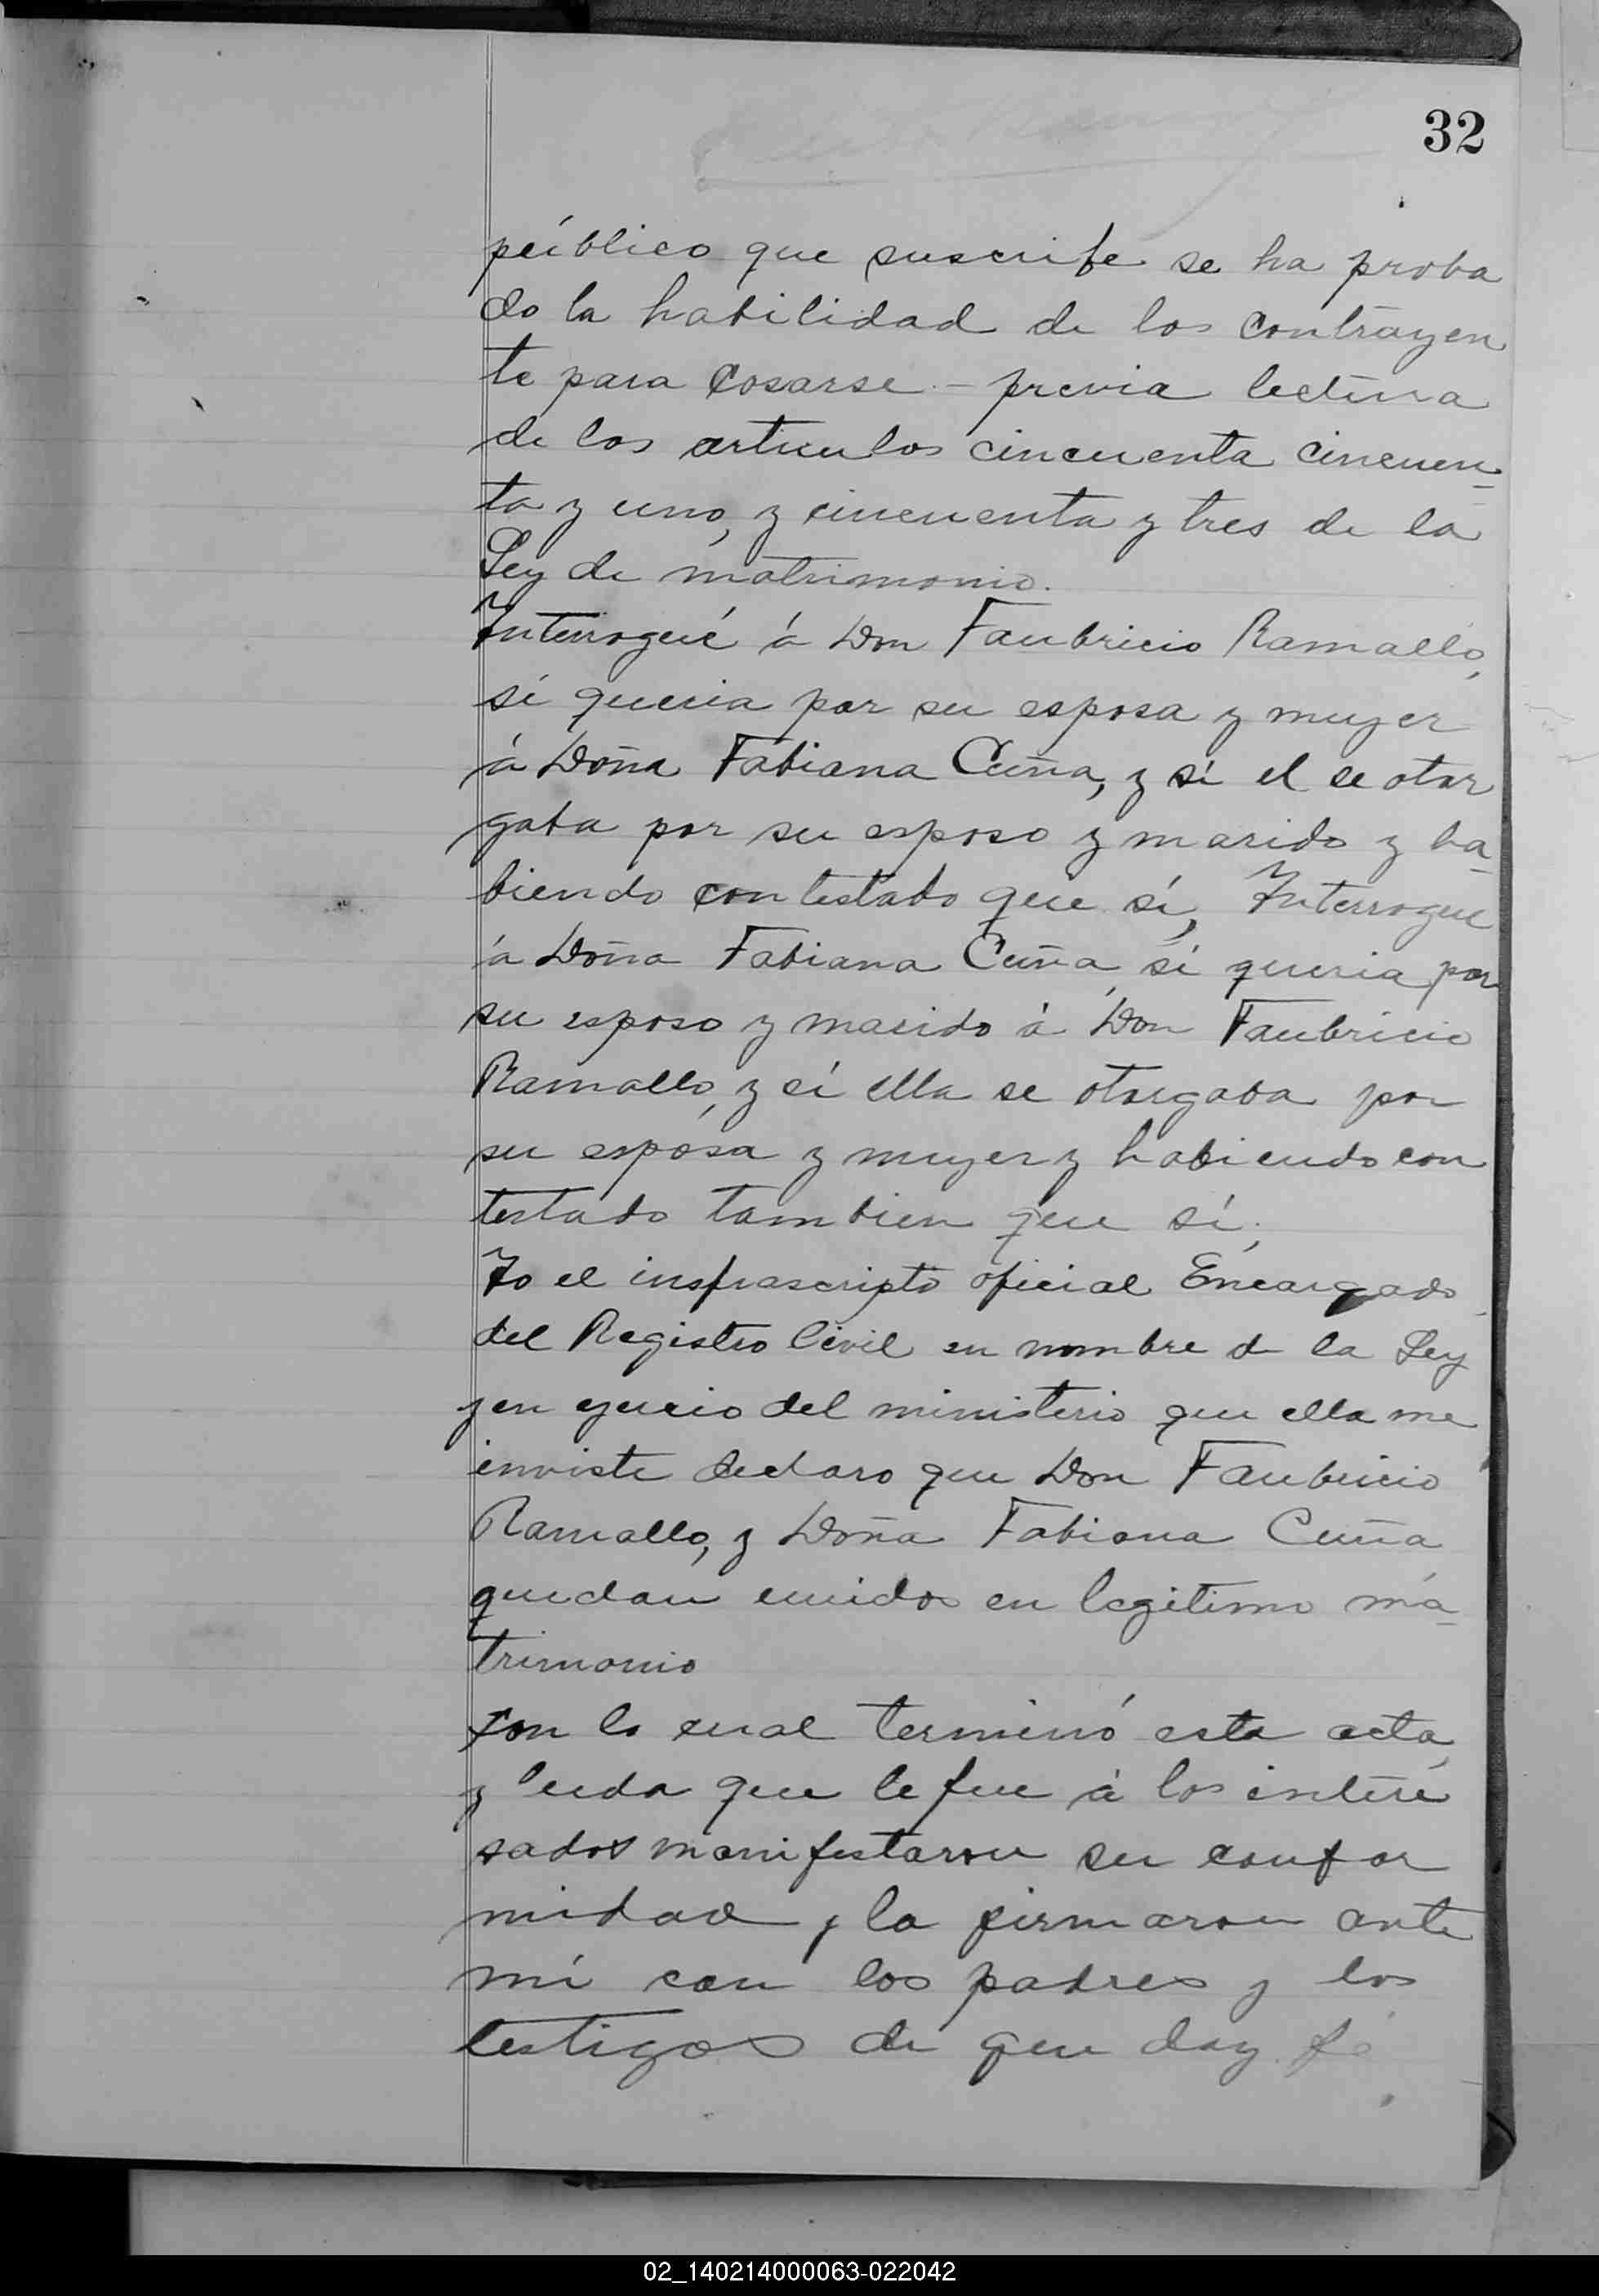 32
público que suscribe se ha proba
do la habilidad de los contrayen
te para cosarse - previa lectura
de los articulos cincuenta cincuen-
ta y uno, y cincuenta y tres de la
Ley de matrimonio.
Interrogué á Don Faubricio Ramallo,
si queria por su esposa y muger
á Doña Fabiana Cuña, y si el se otor
gaba por su esposo y marido y ha-
biendo contestado que sí, Interrogue
á Doña Fabiana Cuña, si queria por
su esposo y marido á Don Faubricio
Ramallo, y si ella se otorgaba por
su esposa y muger y habiendo con
testado tambien que sí,
Yo el insfrascripto oficial Encargado
del Registro Civil en nombre d la Ley
y en ejercio del ministerio que ella me
inviste declaro que Don Faubricio
Ramallo, y Doña Fabiana Cuña
quedan unidos en legitimo ma-
trimonio
con lo cual terminó esta acta,
y leida que le fue á los intere
sados manifestaron su confor
midad y la firmaron ante
mí con los padres y los
testigos de que doy fé
02_140214000063-022042